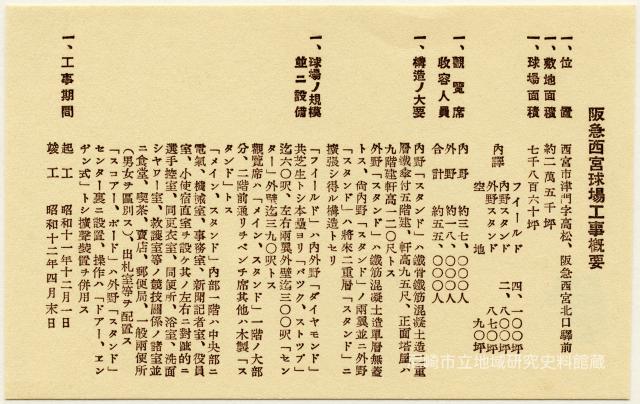 阪急西宮球場工事概要
一、位置 西宮市津門字高松、阪急西宮北口驛前
一、敷地面積 約二萬五千坪
一、球場面積 七千八百六十坪
内譯 フイールド 四、一〇〇坪
内野スタンド 二、八〇〇坪
外野スタンド 八七〇坪
空地 九〇坪
一、觀覽席
收容人員 内野 約三七、〇〇〇人
外野 約一八、〇〇〇人
合計 約五五、〇〇〇人
一、構造ノ大要 内野「スタンド」ハ鐵骨鐵筋混凝土造二重
層鐵傘付五階建、軒高九五尺、正面塔屋ハ
九階建軒高一二〇尺トス
外野「スタンド」ハ鐵筋混凝土造單層無蓋
トス、尚内野「スタンド」ノ兩翼並ニ外野
「スタンド」ハ將來二重層「スタンド」ニ
擴張シ得ル構造トセリ
一、球場ノ規模
並ニ設備 「フイールド」ハ内外野「ダイヤモンド」
共芝生トシ本壘ヨリ「バツク、ストツプ」
迄六〇呎、左右兩翼外壁迄三〇〇呎「セン
ター」外壁迄三九〇呎トス
觀覽席ハ「メイン、スタンド」一階ノ大部
分、二階前通リヲベンチ席其他ハ木製「ス
タンド」トス
「メイン、スタンド」内部一階ノ中央部ニ
電氣、機械室、事務室、新聞記者室、役員
室、小使宿直室ヲ設ケ其ノ左右ニ對蹠的ニ
選手控室、同更衣室、同便所、浴室、洗面
シヤワー室、救護室等ノ競技關係ノ諸室並
ニ食堂、喫茶、賣店、郵便局、一般兩便所
（男女ヲ區別ス）、出札室等ヲ配置ス
「スコアー、ボード」ハ外野「スタンド」
センター裏ニ設置シ操作ハ「ドアー、エン
ヂン式」トシ擴聲裝置ヲ併用ス
一、工事期間 起工 昭和十一年十二月一日
竣工 昭和十二年四月末日
尼崎市立地域研究史料館蔵